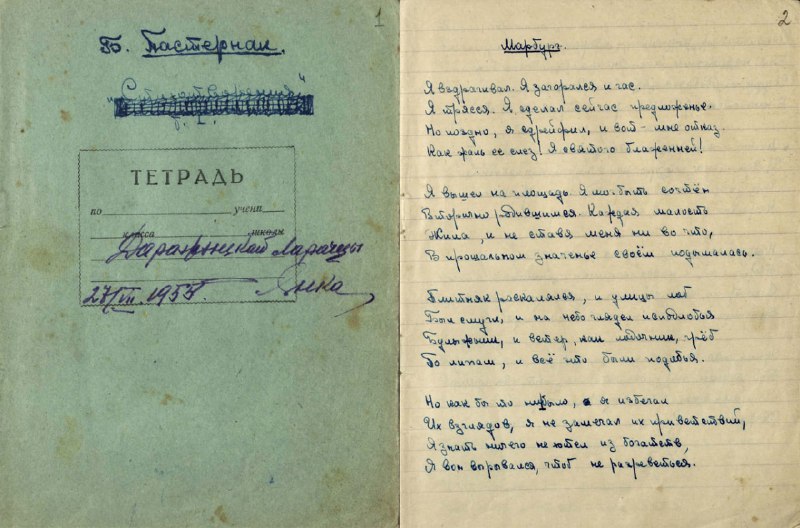 1
Б. Пастернак.
"Стихотворения"
ТЕТРАДЬ
по учени
класса школы
Ларачцы
Янка
2
Марбург.
Я вздрагивал. Я загорался и гас.
Я трясся. Я сделал сейчас предложенье.
Но поздно, я сдрейфил, и вот - мне отказ.
Как жаль ее слез! Я святого блаженней!
Я вышел на площадь. Я мог быть сочтён
Вторично родившимся. Каждая малость
Жила, и не ставя меня ни во что,
В прощальном значенье своём подымалась.
Плитняк раскалялся, и улицы лоб
Был смугл, и на небо глядел исподлобья
Булыжник, и ветер, как лодочник, грёб
По липам, и всё это были подобья.
Но как бы то ни было, я избегал
Их взглядов, я не замечал их приветствий,
Я знать ничего не хотел из богатств,
Я вон вырывался, чтоб не разреветься.